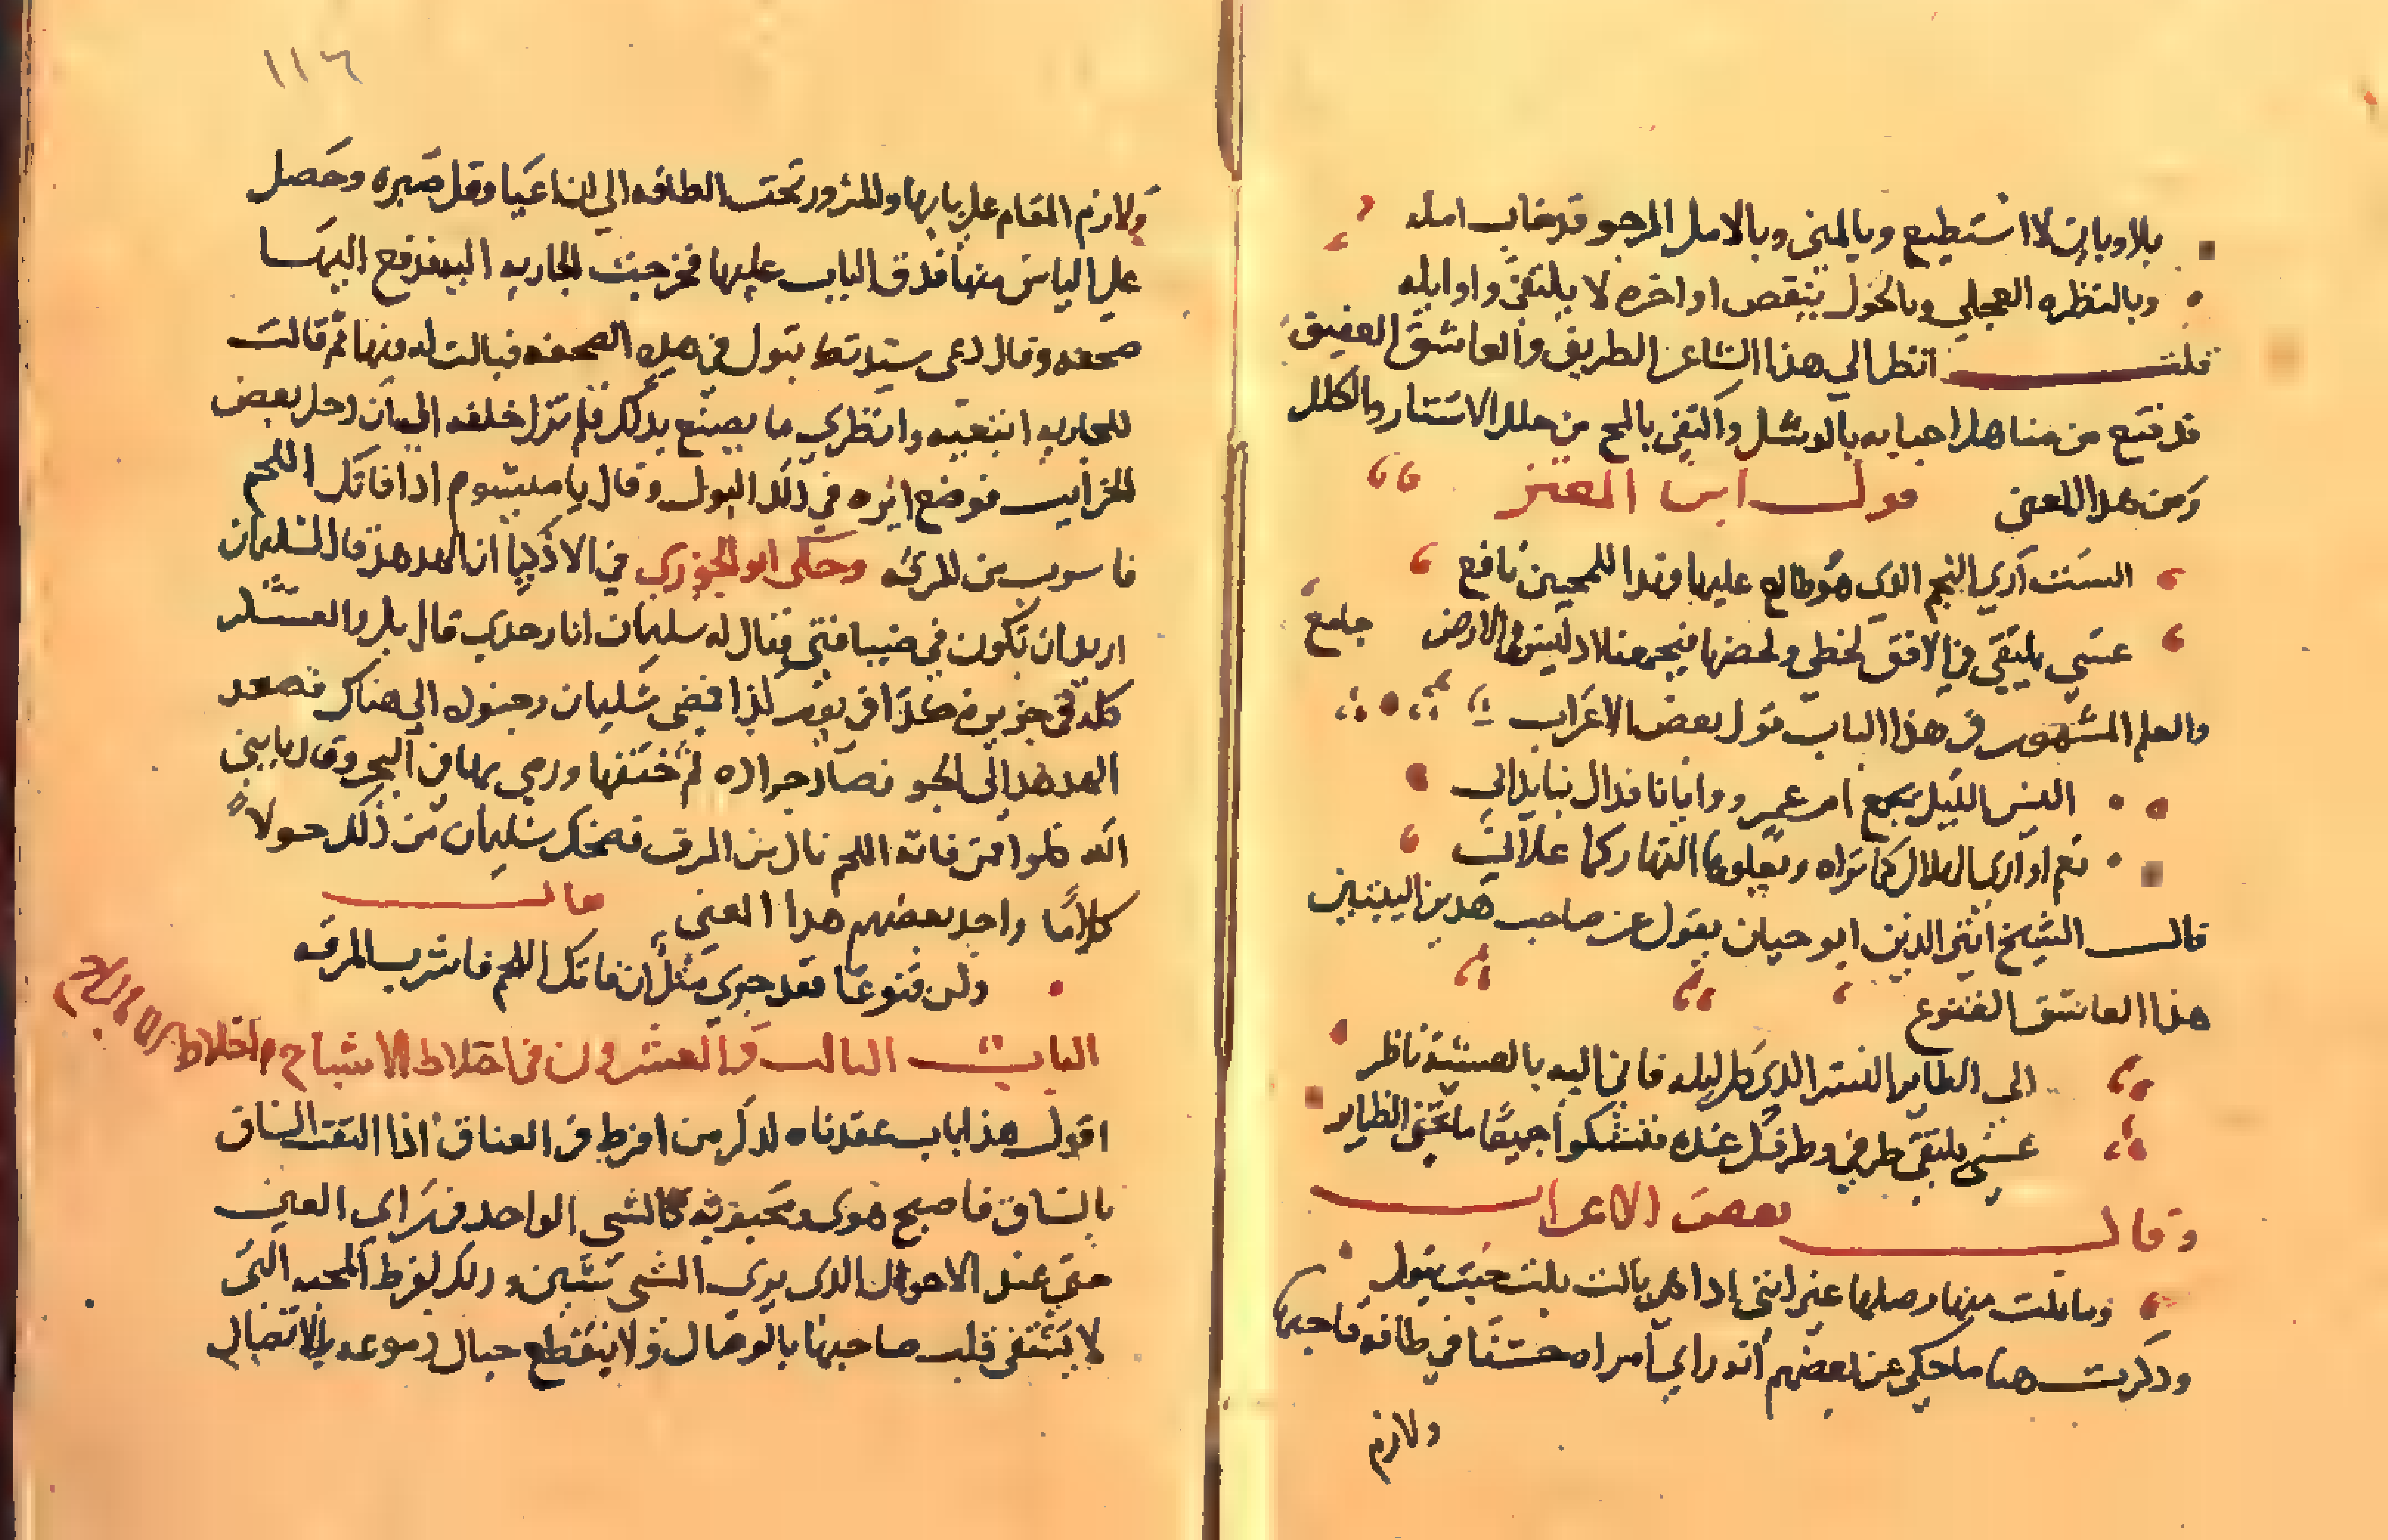 بلا وبان لا استطيع وبالمنى وبالامل المرجو قد خاب امله
وبالنظره العجلي وبالحول ينقص اواخره لا يلتقي واوايله
قلت انظر الي هذا الشاعر الظريف والعاشق العفيف
قد قنع من مناهل احبابه بالوشل واكتفي بالمح من خلل الاستار والكلل
ومن هدا المعنى قول ابن المعتز
الست اري النجم الدي هو طالع عليها وهدا للمحبين نافع
عسي يلتقي في الافق لحظي ولحضها فيجمعنا اد ليس في الارض جامع
والعلم المشهور في هذا الباب قول بعض الاعراب
اليس الليل يجمع ام عمرو وايانا فداك بنا يداني
نعم واري الهلال كما تراه ويعلوها النهار كما علاني
قال الشيخ اثير الدين ابو حيان يقول عن صاحب هدين البيتين
هذا العاشق القنوع
الى الطاير النسر الدي كل ليله فاني اليه بالعشية ناظر
عسى يلتقي طرفي وطرفك عنده فنشكوا جميعا ما تجن الضماير
وقال بعض الاعراب
وما نلت منها وصلها غير انني ادا هي بالت بلت حيث تبول
ودكرت هنا ما حكي عن بعضهم انه راي امراه حسنا في طاقه فاحبها
ولازم
١١٦
ولازم المقام علي بابها والمرور تحت الطاقه الي ان اعيا وقل صبره وحصل
علي الياس منها فدق الباب عليها فخرجت الجاريه اليه فدفع اليها
صحفه وقال دعي ستدتك تبول في هده الصحفه فبالت له فيها ثم قالت
للجاريه اتبعيه وانظري ما يصنع بدلك فلم تزل خلفه الي ان دخل بعض
الخرايب فوضع ايره في دلك البول وقال يا ميشوم ادا فاتك اللحم
فاسرب من المرقه وحكى ابن الجوزي في الاذكيا ان الهدهد قال لسليمان
اريد ان تكون في ضيافتي فقال له سليمان انا وحدي قال بل والعسكر
كله في جزيرة كذا في يوم كذا فمضي سليمان وجنوده الي هناك فصعد
الهدهد الى الجو فصاد جراده ثم خنقها ورمي بها في البحر وقال يا نبي
الله كلوا من فاته اللحم نال من المرق فضحك سليمان من ذلك حولا
كاملا واخد بعضهم هدا المعنى فقال
وكن قنوعا فقد جري مثل ان فاتك اللحم فاشرب المرقه
الباب الثالث والعشرون في اختلاط الاشباح واختلاط الماء بالراح
اقول هذا باب عقدناه لدكر من افرط في العناق اذا التفت الساق
بالساق فاصبح هو ومحبوبه كالشي الواحد في راي العين
حتى عند الاحول الدي يري الشي شيين ودلك لفرط المحبه التي
لا يشتفي قلب صاحبها بالوصال ولا ينقطع حبال دموعه بالاتصال